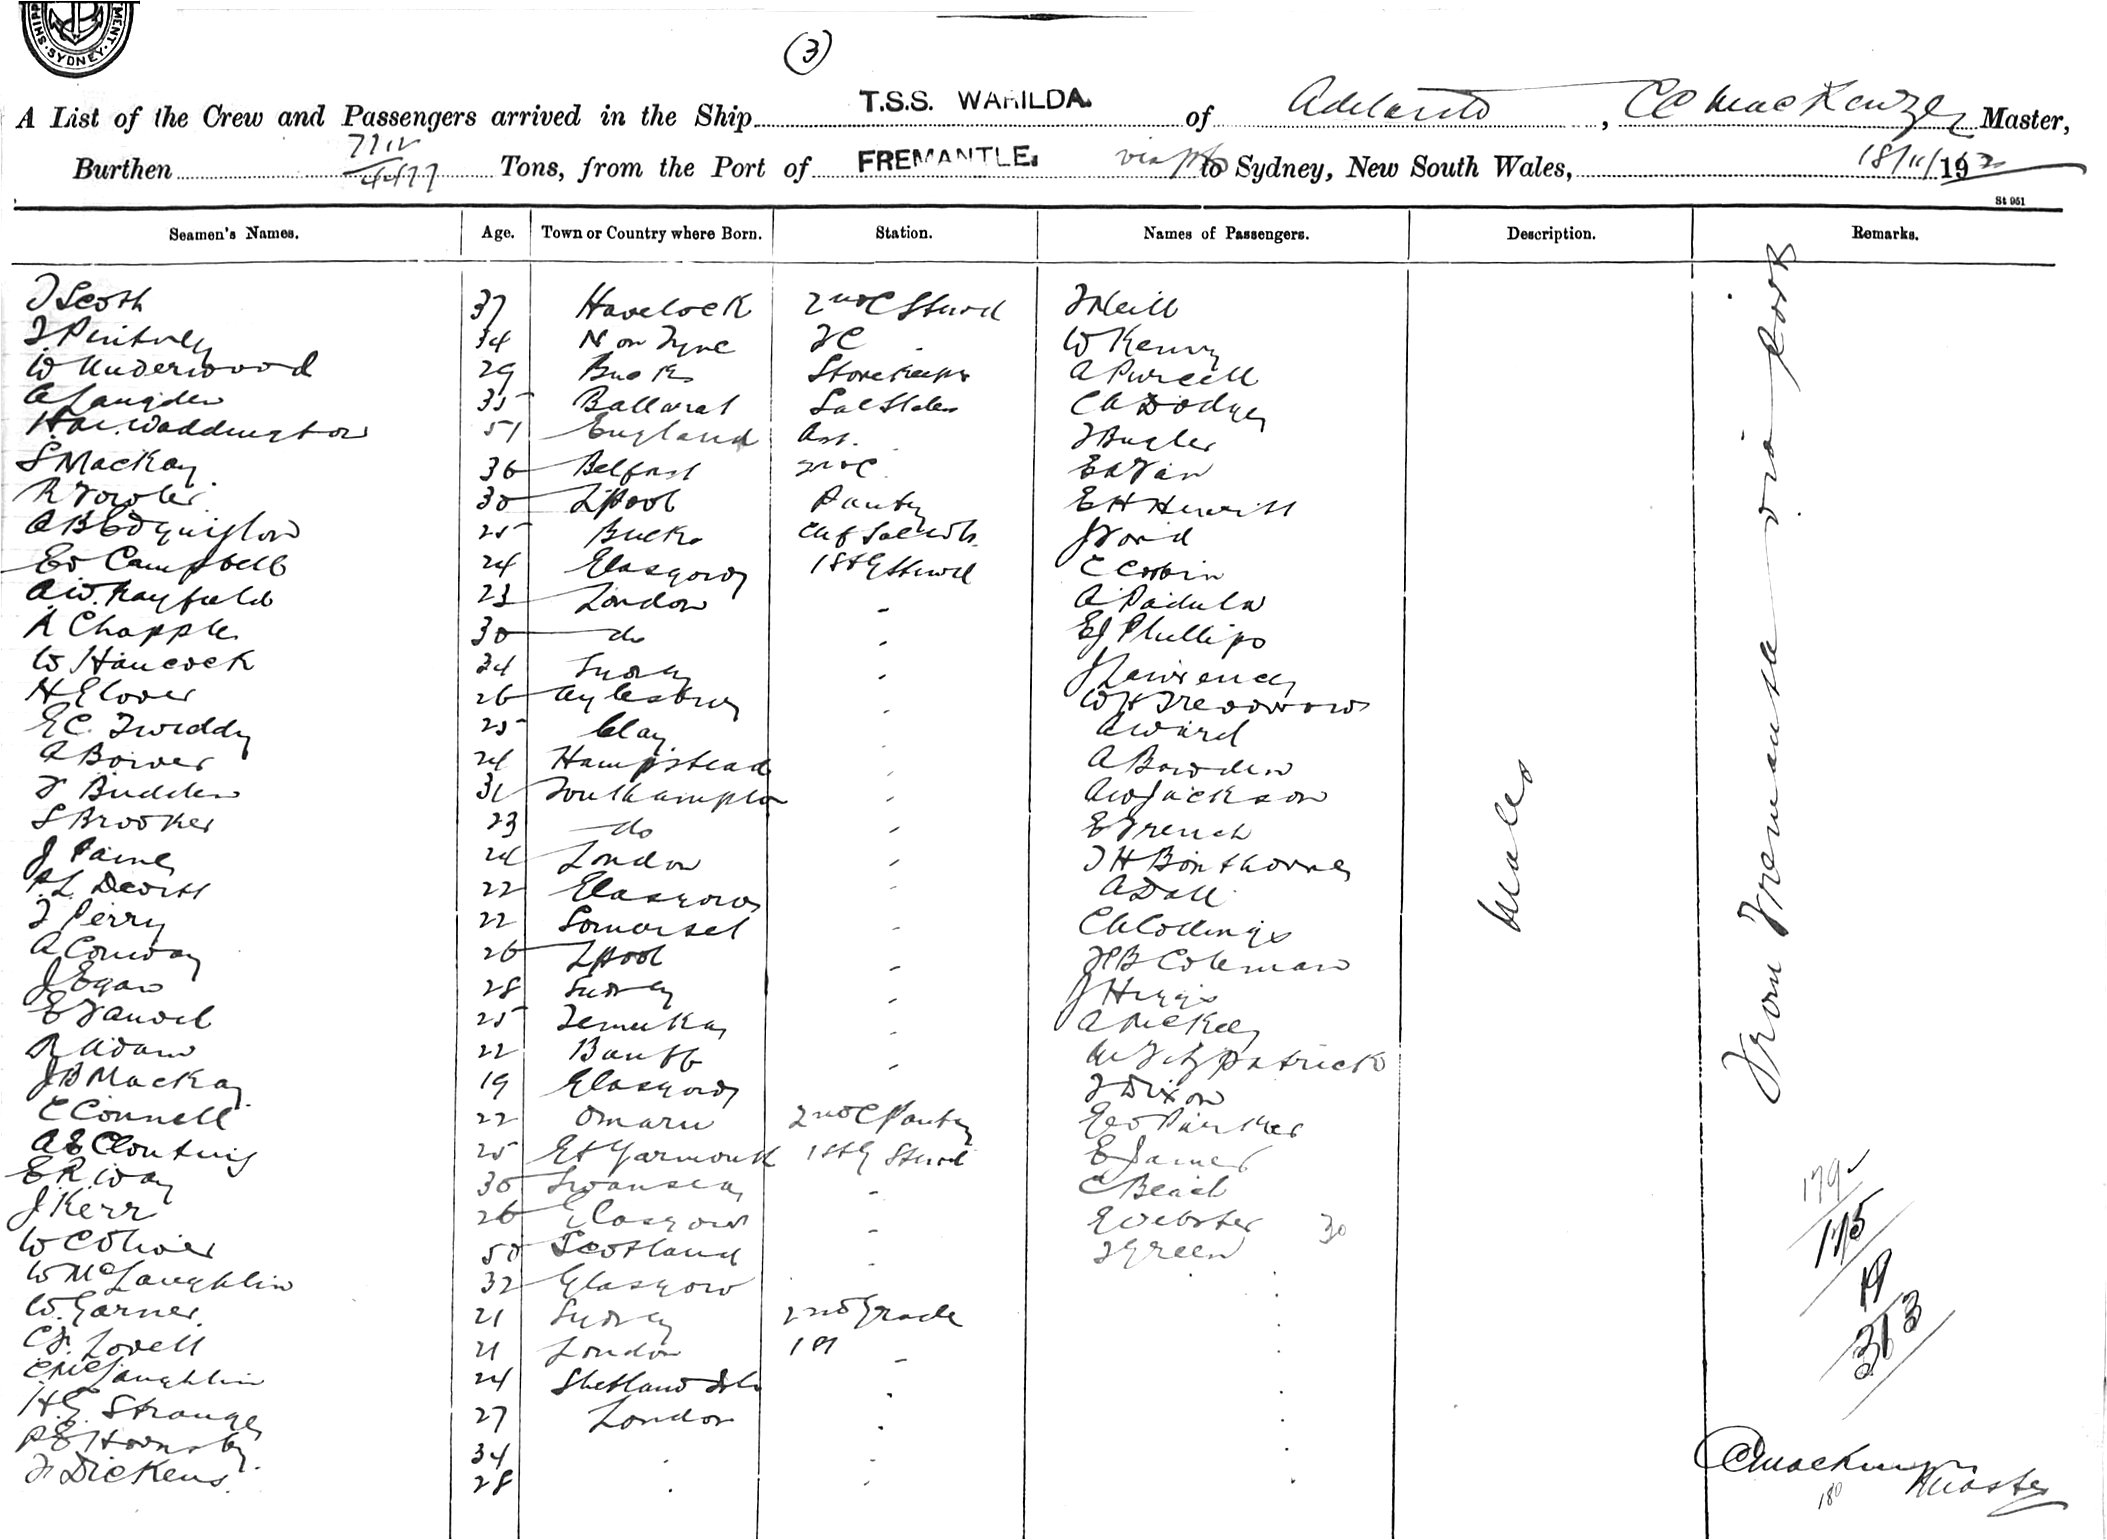 SYDNEY
(3)
A List of the Crew and Passengers arrived in the Ship T.S.S. WARILDA. of Adelaide, CC MacKenzey Master,
Burthen 7712/4477 Tons, from the Port of FREMANTLE. via pts to Sydney, New South Wales, 18/11/1920
St 951
Seamen's Names. Age. Town or Country where Born. Station. Names of Passengers. Description. Remarks.
T Scoth 37 Havelock 2nd C Stwd T Neill
34 N on Tyne 2C W Kenny
W Underwood 29 Bucks Storekeeper A Purcell
A Langden 35 Ballarat C A Dodge
Waddington 51 England Ass. T Bugler
S MacKay 36 Belfast 2nd C
R Fowler 30 L'Pool Pantry E H Hewitt
A B Edquiston 25 Bucks J Ford
Ed Campbell 24 Glasgow 1st G Stewd C Corbin
A W Rayfield 23 London - A Padula
A Chapple 30 do - E J Phillips
W Hancock 34 Sydney - J Lawrence
H Glover 26 Aylesbury - W H
E C Twiddy 25 Clay - A Ward
A Bower 24 Hampstead - A Bowden
F Budden 31 Southampton - A W Jackson
S Brooker 23 do - E French
J Paine 24 London - T H Bonthorne
P.L. Dewitt 22 Glasgow - A Dall
T Perry 22 Somerset - C A Collings
A Conway 26 L'Pool - H B Coleman
J Egan 28 Sydney - J Higgs
E 25 Temuka - A McKey
R Adam 22 Banff - M Fitzpatrick
J B MacKay 19 Glasgow T Dixon
C Connell 22 Omaru 2nd C Pantry Geo Parker
A E Clouting 25 Gt Yarmouth 1st G Stwd E James
E R Way 30 Swansea - C Beach
J Kerr 26 Glasgow - E Webster 30
W C Oliver 50 Scotland - T Green
W McLaughlin 32 Glasgow
W. Garner. 21 Sydney 2nd Grade
C F. Lovell 21 London 1st
C McLaughlin 24 Shetland Isls -
H.G. Strange 27 London
P E Hornsby 34
F Dickens. 28
Males
From Fremantle via ports
179
115
19
313
CC Mackenzey
Master
180